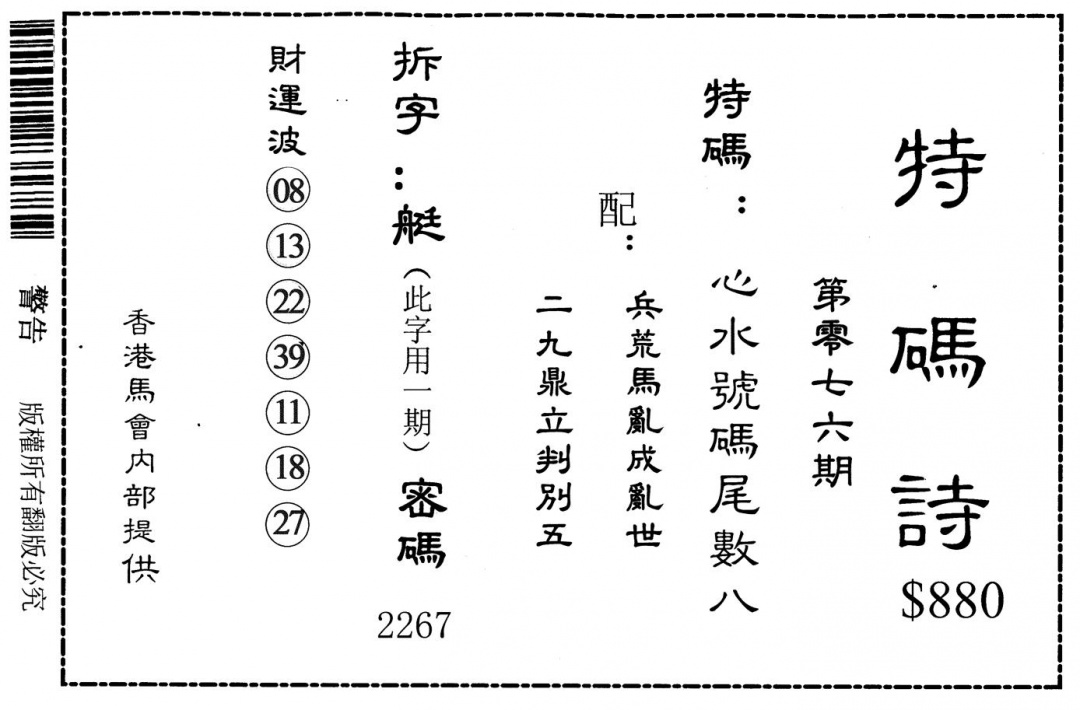 特碼詩
$880
第零七六期
特碼：心水號碼尾數八
配：兵荒馬亂成亂世
二九鼎立判別五
拆字：艇（此字用一期）密碼
2267
財運波 08 13 22 39 11 18 27
香港馬會內部提供
警告 版權所有翻版必究